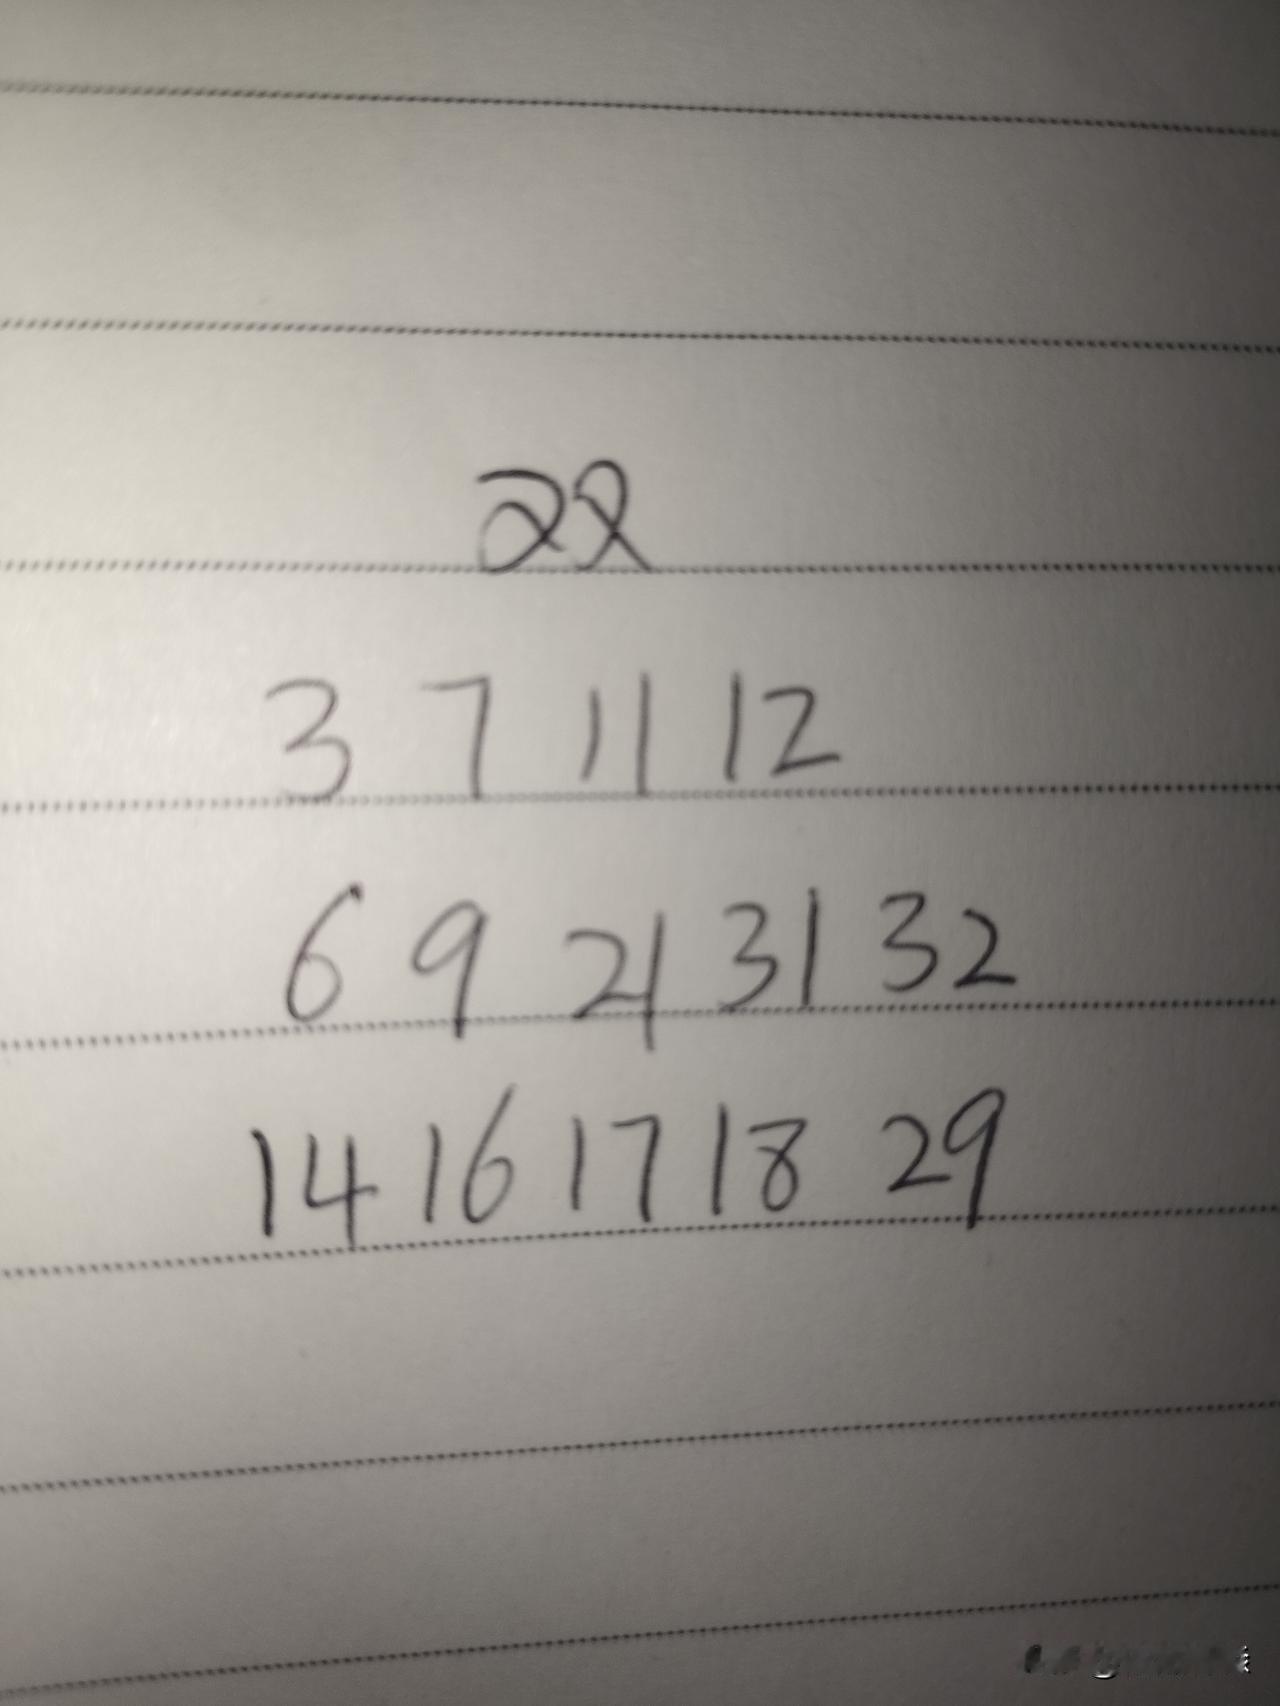 22
3 7 11 12
6 9 21 31 32
14 16 17 18 29